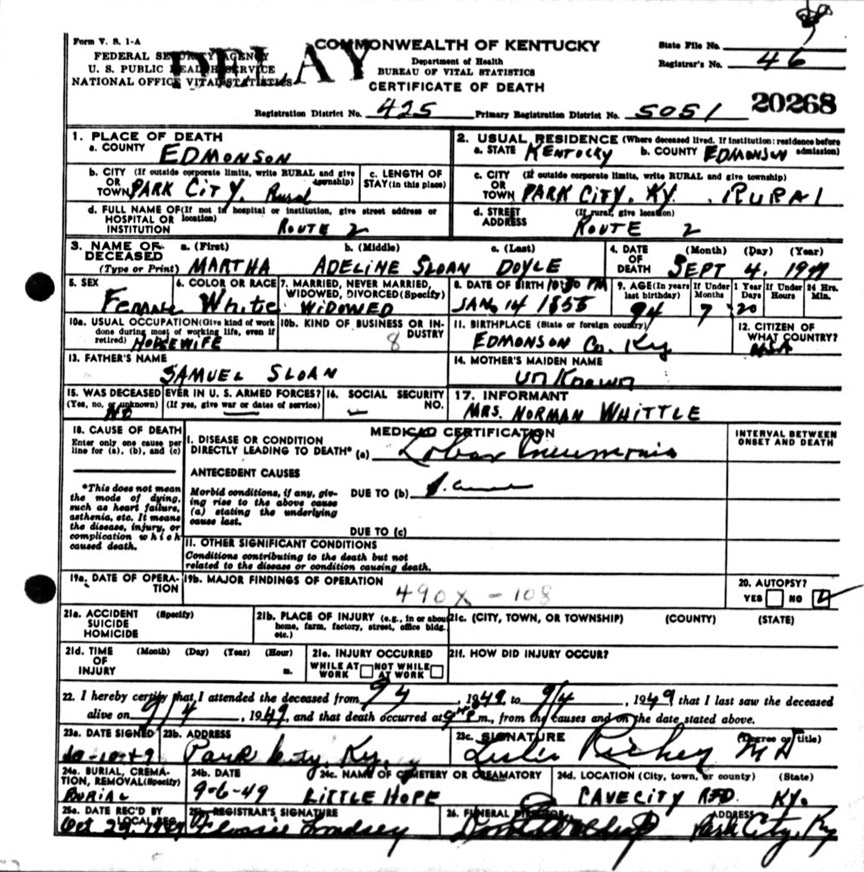 Form V. S. 1-A
COMMONWEALTH OF KENTUCKY
FEDERAL SECURITY AGENCY
U. S. PUBLIC HEALTH SERVICE
NATIONAL OFFICE VITAL STATISTICS
DELAY
Department of Health
BUREAU OF VITAL STATISTICS
CERTIFICATE OF DEATH
State File No.
Registrar's No. 46
Registration District No. 425 Primary Registration District No. 5051 20268
1. PLACE OF DEATH
a. COUNTY EDMONSON
2. USUAL RESIDENCE (Where deceased lived. If institution: residence before admission)
a. STATE KENTUCKY b. COUNTY EDMONSON
b. CITY (If outside corporate limits, write RURAL and give township) OR TOWN PARK CITY. Rural
c. LENGTH OF STAY (in this place)
c. CITY (If outside corporate limits, write RURAL and give township) OR TOWN PARK CITY, KY. RURAL
d. FULL NAME OF (If not in hospital or institution, give street address or location) HOSPITAL OR INSTITUTION ROUTE 2
d. STREET ADDRESS (If rural, give location) ROUTE 2
3. NAME OF DECEASED (Type or Print) a. (First) b. (Middle) c. (Last)
MARTHA ADELINE SLOAN DOYLE
4. DATE OF DEATH (Month) (Day) (Year)
SEPT 4. 1949
5. SEX Female
6. COLOR OR RACE White
7. MARRIED, NEVER MARRIED, WIDOWED, DIVORCED (Specify) WIDOWED
8. DATE OF BIRTH 10:30 PM
JAN 14 1855
9. AGE (In years last birthday) 94
If Under 1 Year Months 7 Days 20
If Under 24 Hrs. Hours Min.
10a. USUAL OCCUPATION (Give kind of work done during most of working life, even if retired) HOUSEWIFE
10b. KIND OF BUSINESS OR INDUSTRY 8
11. BIRTHPLACE (State or foreign country) EDMONSON Co. Ky
12. CITIZEN OF WHAT COUNTRY? USA
13. FATHER'S NAME
SAMUEL SLOAN
14. MOTHER'S MAIDEN NAME
unKnown
15. WAS DECEASED EVER IN U. S. ARMED FORCES? (Yes, no, or unknown) (If yes, give war or dates of service) NO
16. SOCIAL SECURITY NO.
17. INFORMANT
MRS. NORMAN WHITTLE
18. CAUSE OF DEATH
Enter only one cause per line for (a), (b), and (c)
*This does not mean the mode of dying, such as heart failure, asthenia, etc. It means the disease, injury, or complication which caused death.
MEDICAL CERTIFICATION
INTERVAL BETWEEN ONSET AND DEATH
I. DISEASE OR CONDITION DIRECTLY LEADING TO DEATH* (a) Lobar Pneumonia
ANTECEDENT CAUSES
Morbid conditions, if any, giving rise to the above cause (a) stating the underlying cause last.
DUE TO (b)
DUE TO (c)
II. OTHER SIGNIFICANT CONDITIONS
Conditions contributing to the death but not related to the disease or condition causing death.
19a. DATE OF OPERATION
19b. MAJOR FINDINGS OF OPERATION
490X - 108
20. AUTOPSY?
YES NO
21a. ACCIDENT SUICIDE HOMICIDE (Specify)
21b. PLACE OF INJURY (e.g., in or about home, farm, factory, street, office bldg. etc.)
21c. (CITY, TOWN, OR TOWNSHIP) (COUNTY) (STATE)
21d. TIME OF INJURY (Month) (Day) (Year) (Hour) m.
21e. INJURY OCCURRED
WHILE AT WORK NOT WHILE AT WORK
21f. HOW DID INJURY OCCUR?
22. I hereby certify that I attended the deceased from 9/4, 1949 to 9/4, 1949 that I last saw the deceased
alive on 9/4, 1949, and that death occurred at m., from the causes and on the date stated above.
23a. DATE SIGNED 10-10-49
23b. ADDRESS Park City, Ky.
23c. SIGNATURE (Degree or title)
Leslie Richey MD
24a. BURIAL, CREMATION, REMOVAL (Specify) BURIAL
24b. DATE 9-6-49
24c. NAME OF CEMETERY OR CREMATORY LITTLE HOPE
24d. LOCATION (City, town, or county) (State)
CAVE CITY RFD. KY.
25a. DATE REC'D BY LOCAL REG. Oct 29, 1949
25b. REGISTRAR'S SIGNATURE Flossie Lindsey
26. FUNERAL DIRECTOR ADDRESS
Park City, Ky